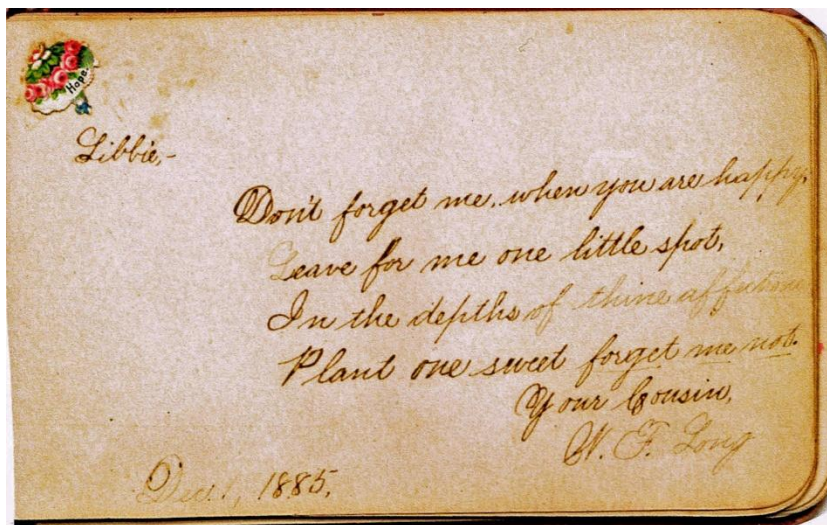 Hope.
Libbie,-
Don't forget me, when you are happy,
Leave for me one little spot,
In the depths of thine affections
Plant one sweet forget me not.
Your Cousin,
W. F. Long
Dec. 1, 1885.